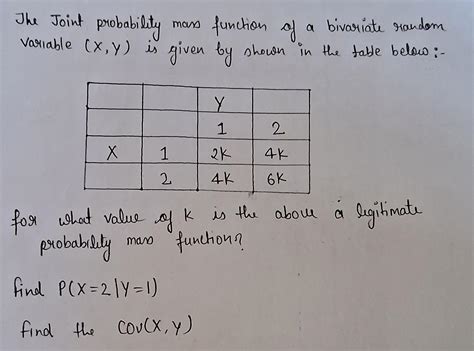 The Joint probability mass function of a bivariate random
variable (X,Y) is given by shown in the table below :-
Y
1 2
X 1 2K 4K
2 4K 6K
for what value of K is the above a legitimate
probability mass function?
find P(X=2|Y=1)
find the COV(X,Y)